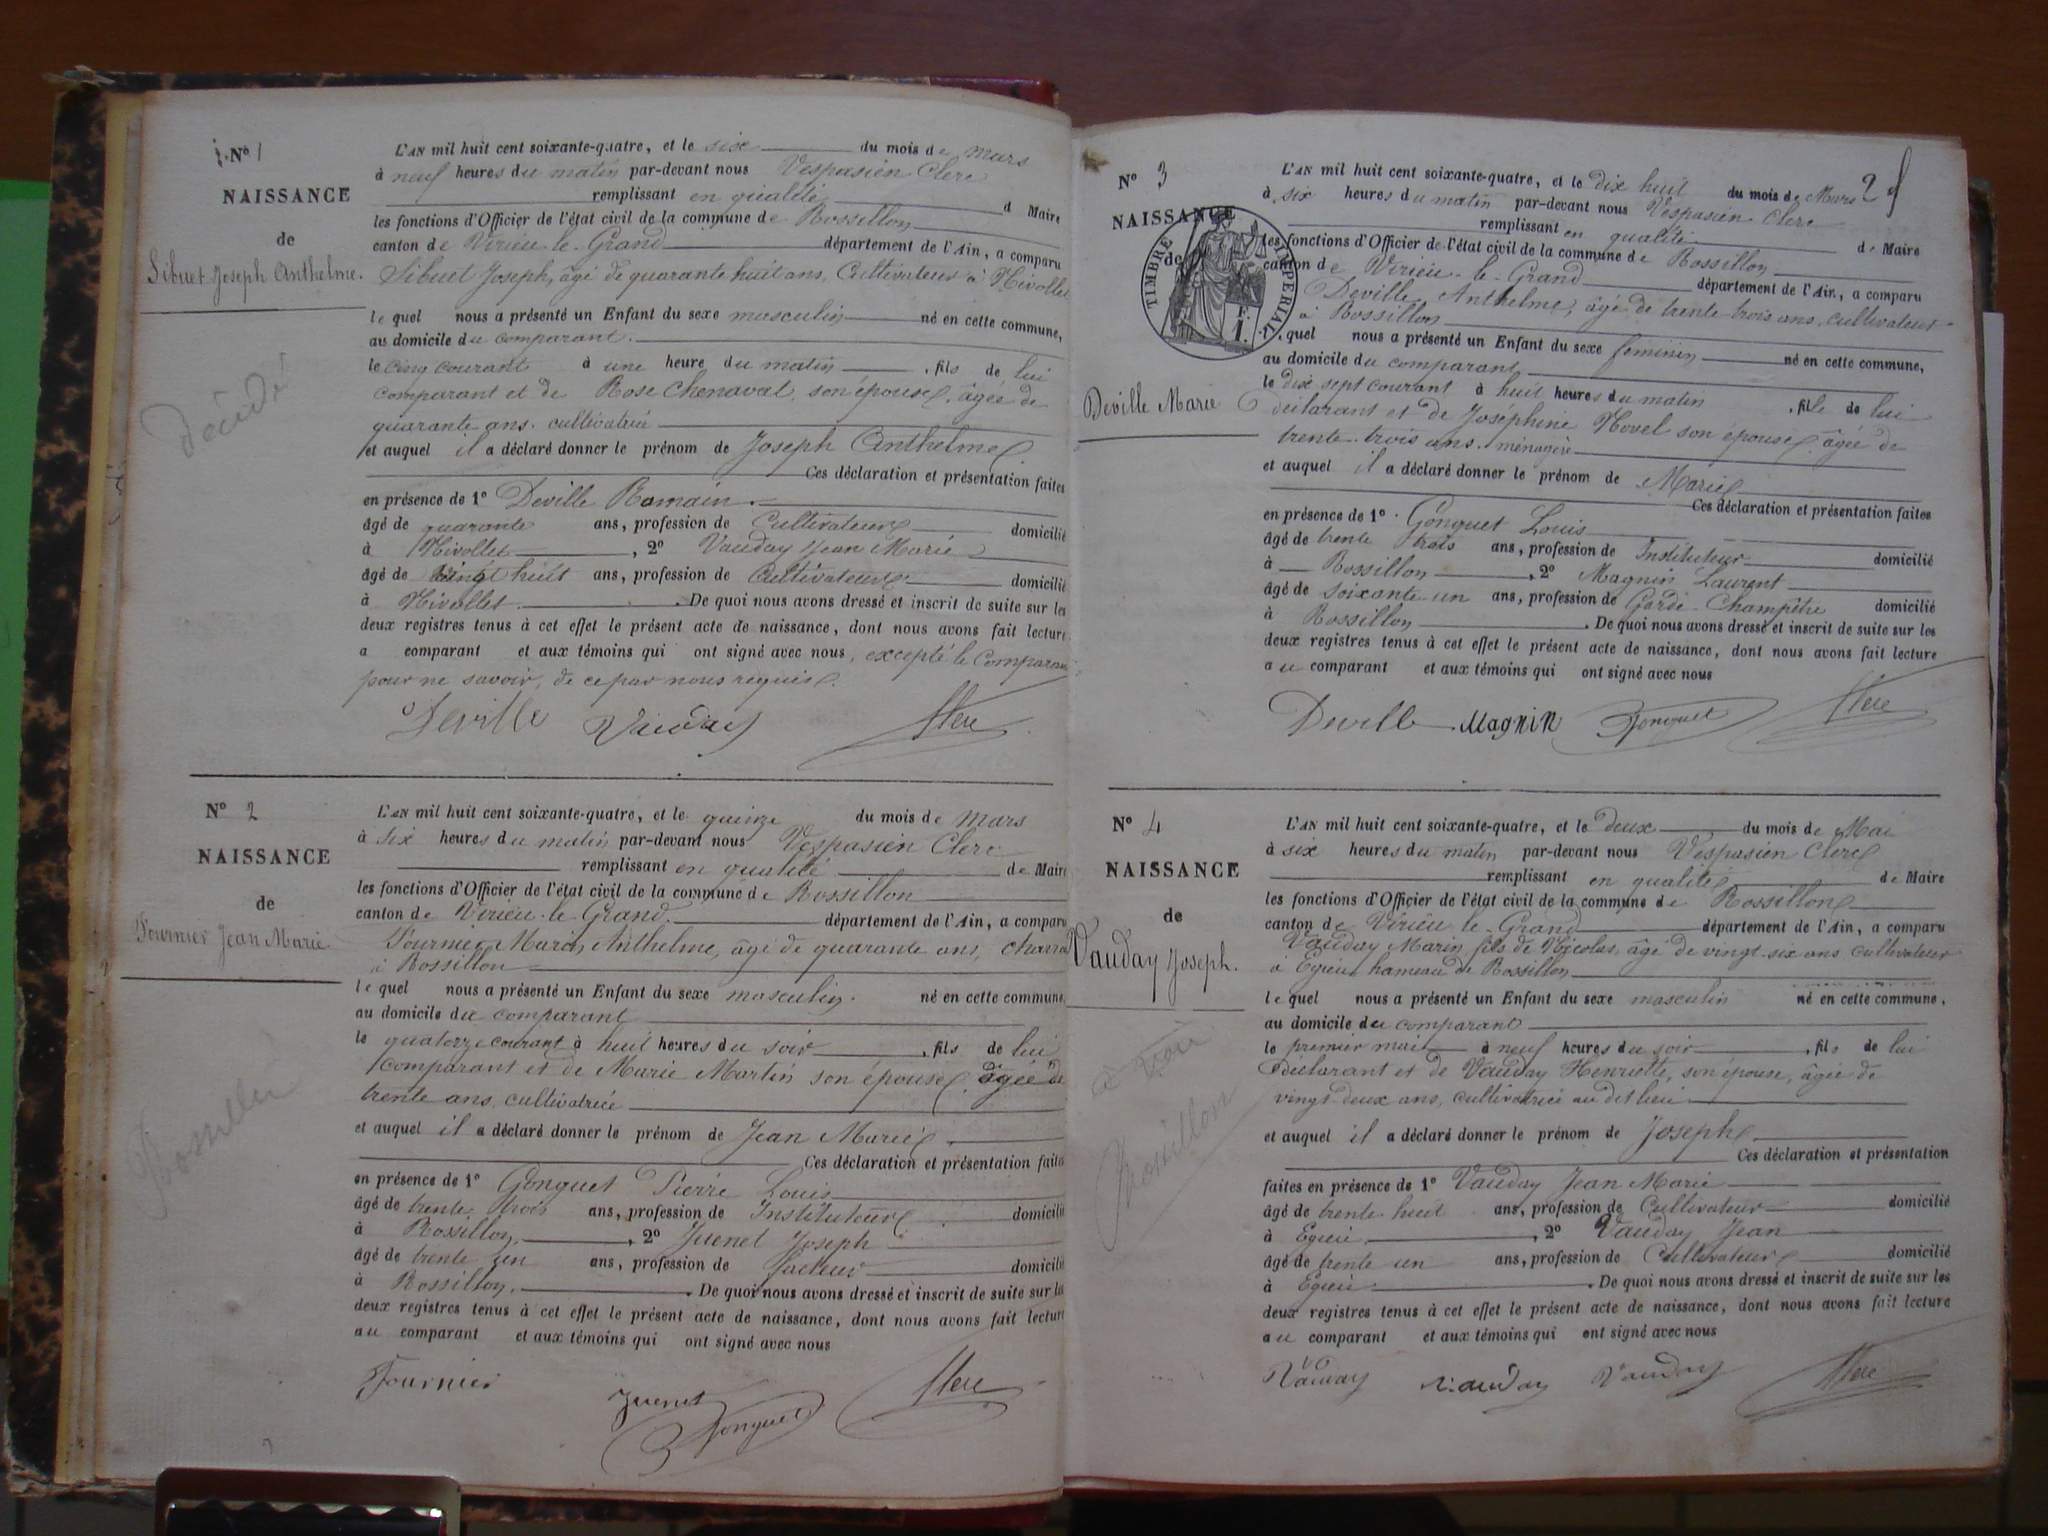 N° 1
NAISSANCE
de
Sibuet Joseph Anthelme.
décédé
L'AN mil huit cent soixante-quatre, et le six du mois de mars
à neuf heures du matin par-devant nous Vespasien Clerc
remplissant en qualité d Maire
les fonctions d'Officier de l'état civil de la commune de Rossillon
canton de Virieu-le-Grand département de l'Ain, a comparu
Sibuet Joseph, âgé de quarante huit ans, Cultivateur à Nivollet
lequel nous a présenté un Enfant du sexe masculin né en cette commune,
au domicile du comparant.
le cinq courant à une heure du matin, fils de lui
comparant et de Rose Chenaval, son épouse, âgée de
quarante ans. cultivatrice
et auquel il a déclaré donner le prénom de Joseph Anthelme
Ces déclaration et présentation faites
en présence de 1° Deville Romain.
âgé de quarante ans, profession de Cultivateur domicilié
à Nivollet, 2° Vauday Jean Marie
âgé de vingt huit ans, profession de Cultivateur domicilié
à Nivollet. De quoi nous avons dressé et inscrit de suite sur les
deux registres tenus à cet effet le présent acte de naissance, dont nous avons fait lecture
a comparant et aux témoins qui ont signé avec nous, excepté le Comparant
pour ne savoir, de ce par nous requis.
Deville Vauday Clerc
N° 2
NAISSANCE
de
Fournier Jean Marie
Rossillon
L'AN mil huit cent soixante-quatre, et le quinze du mois de mars
à six heures du matin par-devant nous Vespasien Clerc
remplissant en qualité de Maire
les fonctions d'Officier de l'état civil de la commune de Rossillon
canton de Virieu-le-Grand. département de l'Ain, a comparu
Fournier Marin Anthelme, âgé de quarante ans,
à Rossillon
lequel nous a présenté un Enfant du sexe masculin. né en cette commune,
au domicile du comparant
le quatorze courant à huit heures du soir, fils de lui
comparant et de Marie Martin son épouse, âgée de
trente ans, cultivatrice
et auquel il a déclaré donner le prénom de Jean Marie
Ces déclaration et présentation faites
en présence de 1° Gonguet Pierre Louis
âgé de trente trois ans, profession de Instituteur domicilié
à Rossillon, 2° Juenet Joseph
âgé de trente un ans, profession de facteur domicilié
à Rossillon. De quoi nous avons dressé et inscrit de suite sur les
deux registres tenus à cet effet le présent acte de naissance, dont nous avons fait lecture
au comparant et aux témoins qui ont signé avec nous
Fournier Juenet Gonguet Clerc
2
N° 3
NAISSANCE
de
TIMBRE IMPERIAL
1 F.
Deville Marie
L'AN mil huit cent soixante-quatre, et le dix huit du mois de Mars
à six heures du matin par-devant nous Vespasien Clerc
remplissant en qualité de Maire
les fonctions d'Officier de l'état civil de la commune de Rossillon
canton de Virieu-le-Grand département de l'Ain, a comparu
Deville Anthelme, âgé de trente trois ans, cultivateur
à Rossillon
lequel nous a présenté un Enfant du sexe feminin né en cette commune,
au domicile du comparant
le dix sept courant à huit heures du matin, fille de lui
déclarant et de Joséphine Novel son épouse, âgée de
trente-trois ans. ménagère
et auquel il a déclaré donner le prénom de Marie
Ces déclaration et présentation faites
en présence de 1° Gonguet Louis
âgé de trente trois ans, profession de Instituteur domicilié
à Rossillon, 2° Magnin Laurent
âgé de soixante-un ans, profession de Garde-Champêtre domicilié
à Rossillon. De quoi nous avons dressé et inscrit de suite sur les
deux registres tenus à cet effet le présent acte de naissance, dont nous avons fait lecture
au comparant et aux témoins qui ont signé avec nous
Deville Magnin Gonguet Clerc
N° 4
NAISSANCE
de
Vauday Joseph.
Rossillon
L'AN mil huit cent soixante-quatre, et le deux du mois de Mai
à six heures du matin par-devant nous Vespasien Clerc
remplissant en qualité de Maire
les fonctions d'Officier de l'état civil de la commune de Rossillon
canton de Virieu le-Grand département de l'Ain, a comparu
Vauday Marin fils de Nicolas, âgé de vingt-six ans cultivateur
à Egieu hameau de Rossillon
lequel nous a présenté un Enfant du sexe masculin né en cette commune,
au domicile du comparant
le premier mai à neuf heures du soir, fils de lui
Déclarant et de Vauday Henriette, son épouse, âgée de
vingt-deux ans, cultivatrice au dit lieu
et auquel il a déclaré donner le prénom de Joseph
Ces déclaration et présentation
faites en présence de 1° Vauday Jean Marie
âgé de trente huit ans, profession de Cultivateur domicilié
à Egieu, 2° Vauday Jean
âgé de trente un ans, profession de Cultivateur domicilié
à Egieu. De quoi nous avons dressé et inscrit de suite sur les
deux registres tenus à cet effet le présent acte de naissance, dont nous avons fait lecture
au comparant et aux témoins qui ont signé avec nous
Vauday Vauday Vauday Clerc